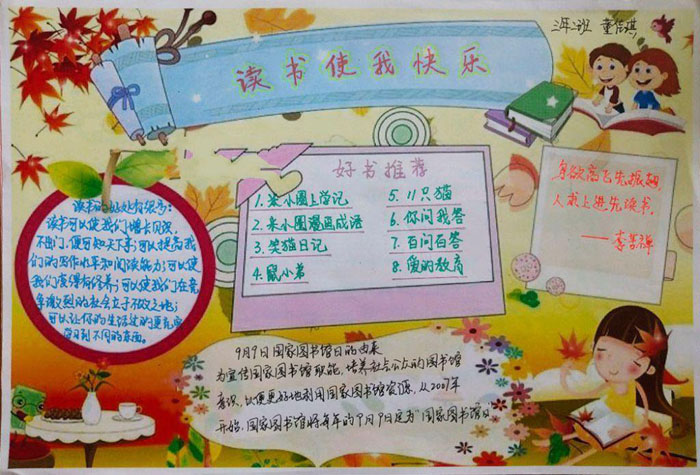 三年二班 董信琪
读书使我快乐
读书的好处有很多:
读书可以使我们增长见识,
不出门,便可知天下事;可以提高我
们的写作水平和阅读能力;可以使
我们变得有修养;可以使我们在竞
争激烈的社会立于不败之地;
可以让你的生活过的更充实
学习到不同的东西。
好书推荐
1.米小圈上学记
2.米小圈漫画成语
3.笑猫日记
4.鼠小弟
5.11只猫
6.你问我答
7.百问百答
8.爱的教育
鸟欲高飞先振翅,
人求上进先读书。
——李苦禅
9月9日国家图书馆日的由来
为宣传国家图书馆职能,培养社会公众的图书馆
意识,以便更好地利用国家图书馆资源,从2007年
开始,国家图书馆将每年的9月9日定为“国家图书馆日